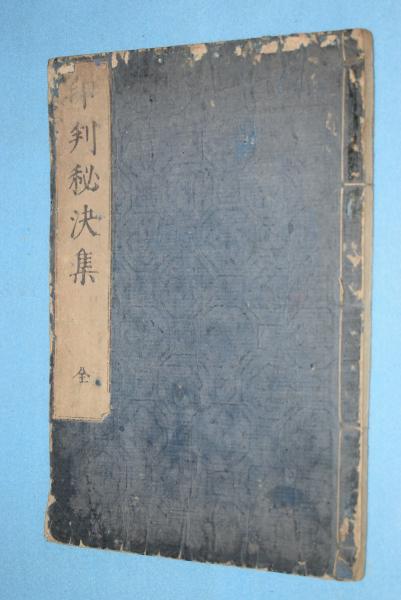 印判秘決集
全